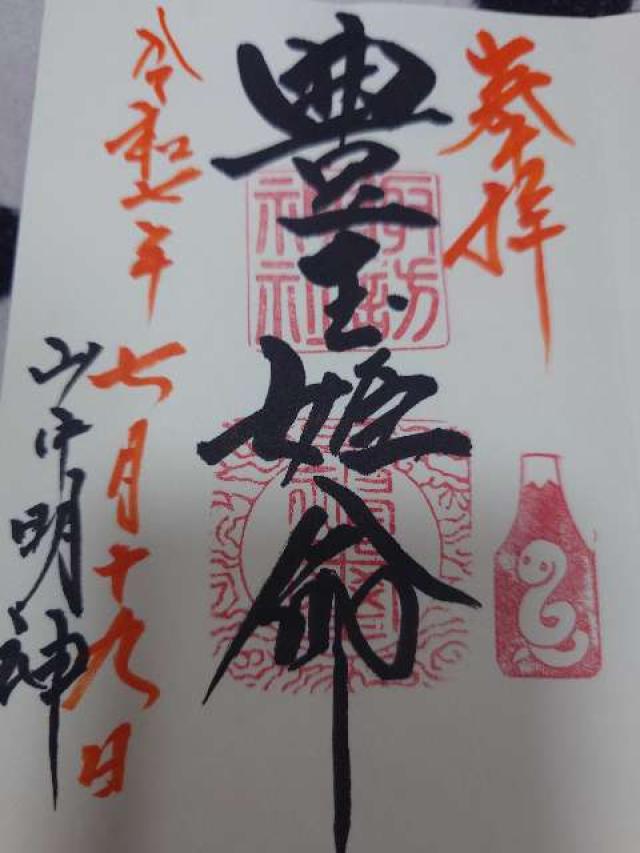 奉拝
豊玉姫命
諏訪
神社
令和七年
七月十九日
山中明神